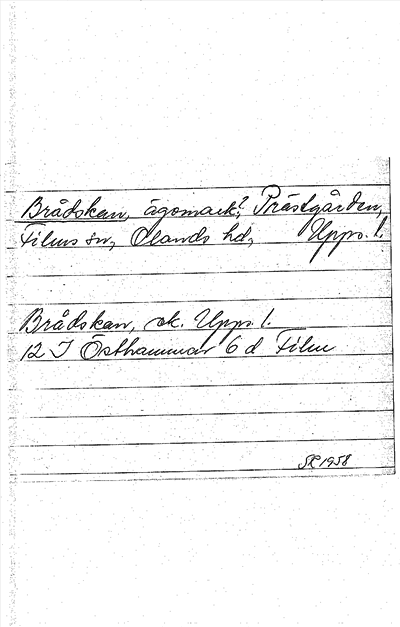 Brådskan, ägomark?, Prästgården,
Films sn, Olands hd, Upps. l.
Brådskan, ek. Upps. l.
12 I Östhammar 6 d Film
1958